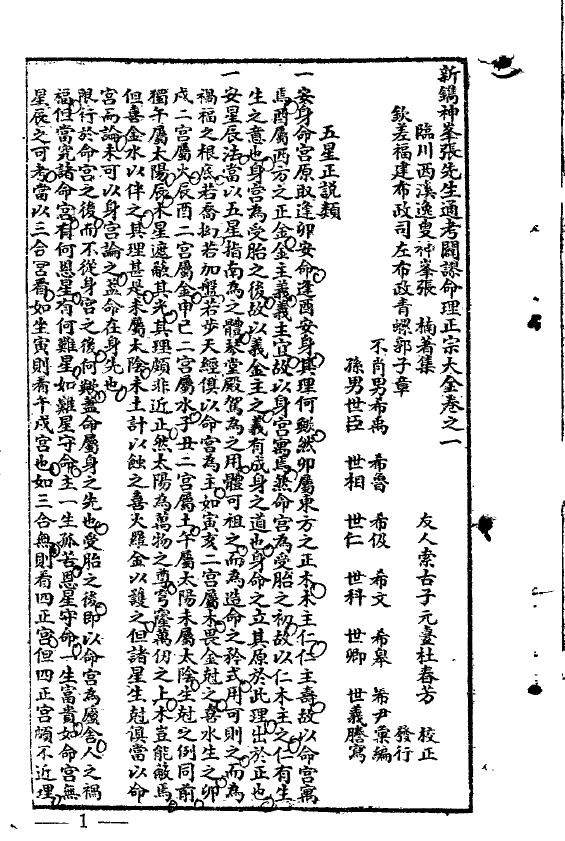 新鐫神峯張先生通考闢謬命理正宗大全卷之一
臨川西溪逸叟神峯張　楠著集
友人索古子元臺杜春芳　校正
欽差福建布政司左布政青螺郭子章　發行
不肖男希禹　希魯　希伋　希文　希皋　希尹彙編
孫男世臣　世相　世仁　世科　世卿　世義謄寫
五星正說類
一安身命宮原取逢卯安命逢酉安身其理何歟然卯屬東方之正木木主仁仁主壽故以命宮寓
馬酉屬西方之正金金主義義主宜故以身宮寓焉然命宮為受胎之初故以仁木主之仁有生
生之意也身宮為受胎之後故以義金主之義有成身之道也身命之立其原於此理出於正也
一安星辰法當以五星指南為之體琴堂殿駕為之用體可祖之而為造命之矜式用可則之而為
禍福之根底若喬拗若加盤若步天經俱以命宮為主如寅亥二宮屬木畏金尅之喜水生之卯
戌二宮屬火辰酉二宮屬金申巳二宮屬水子丑二宮屬土午屬太陽未屬太陰生尅之例同前
獨午屬太陽辰木星遮蔽其光其理頗非近正然太陽為萬物之尊穹窿萬仞之上木豈能蔽焉
但喜金水以伴之其理甚是未屬太陰未土計以蝕之喜火羅金以護之但諸星生尅俱當以命
宮而論未可以身宮論之蓋命在身先也
限行於命宮之後而不從身宮之後何歟蓋命屬身之先也受胎之後即以命宮為廈舍人之禍
福但當究諸命宮有何恩星有何難星如難星守命主一生孤苦恩星守命一生富貴如命宮無
星辰之可考當以三合宮看如坐寅則看午戌宮也如三合無則看四正宮但四正宮頗不近理
— 1 —